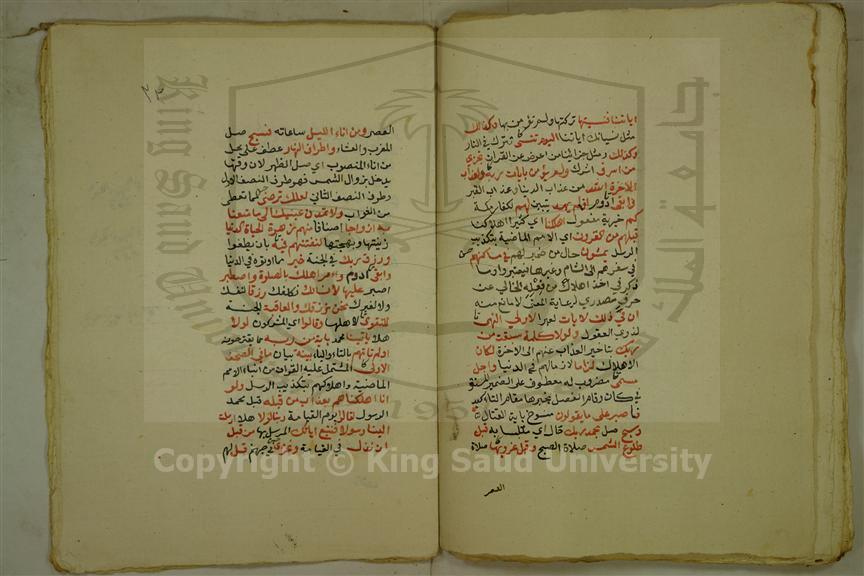 اياتنا فنسيتها تركتها ولم تؤمن بها وكذلك
مثل نسيانك اياتنا اليوم تنسى تترك في النار
وكذلك ومثل جزائنا من اعرض عن القران نجزي
من اسرف اشرك ولم يؤمن بايات ربه ولعذاب
الاخرة اشد من عذاب الدنيا وعذاب القبر
وابقى ادوم افلم يهد يتبين لهم لكفار مكة
كم خبرية مفعول اهلكنا اي كثيرا اهلاكنا
قبلهم من القرون اي الامم الماضية بتكذيب
الرسل يمشون حال من ضمير لهم في مساكنهم
في سفرهم الى الشام وغيرها فيعتبروا وما
ذكر في اخذ اهلاك من فعله الخالي عن
حرف مصدري لرعاية المعنى لا مانع منه
ان في ذلك لايات لعبرا لاولي النهى
لذوي العقول ولولا كلمة سبقت من
ربك بتاخير العذاب عنهم الى الاخرة لكان
الاهلاك لزاما لازما لهم في الدنيا واجل
مسمى مضروب له معطوف على الضمير المستتر
في كان وقام الفصل بخبرها مقام التاكيد
فاصبر على ما يقولون منسوخ باية القتال
وسبح صل بحمد ربك حال اي متلبسا به قبل
طلوع الشمس صلاة الصبح وقبل غروبها صلاة
العصر
٣٣
العصر ومن اناء الليل ساعاته فسبح صل
المغرب والعشاء واطراف النهار عطف على محل
من اناء المنصوب اي صل الظهر لان وقتها
يدخل بزوال الشمس فهو طرف النصف الاول
وطرف النصف الثاني لعلك ترضى بما تعطى
من الثواب ولا تمدن عينيك الى ما متعنا
به ازواجا اصنافا منهم زهرة الحياة الدنيا
زينتها وبهجتها لنفتنهم فيه بان يطغوا
ورزق ربك في الجنة خير مما اوتوه في الدنيا
وابقى ادوم وامر اهلك بالصلوة واصطبر
اصبر عليها لا نسالك نكلفك رزقا لنفسك
ولا لغيرك نحن نرزقك والعاقبة الجنة
للتقوى لاهلها وقالوا اي المشركون لولا
هلا ياتينا محمد باية من ربه مما يقترحونه
اولم تاتهم بالتاء والياء بينة بيان ما في الصحف
الاولى المشتمل عليه القران من انباء الامم
الماضية واهلاكهم بتكذيب الرسل ولو
انا اهلكناهم بعذاب من قبله قبل محمد
الرسول لقالوا يوم القيامة ربنا لولا هلا ارسلت
الينا رسولا فنتبع اياتك المرسل بها من قبل
ان نذل في القيامة ونخزى في جهنم قل لهم
جامعة الملك
King Saud
1957
Copyright © King Saud University